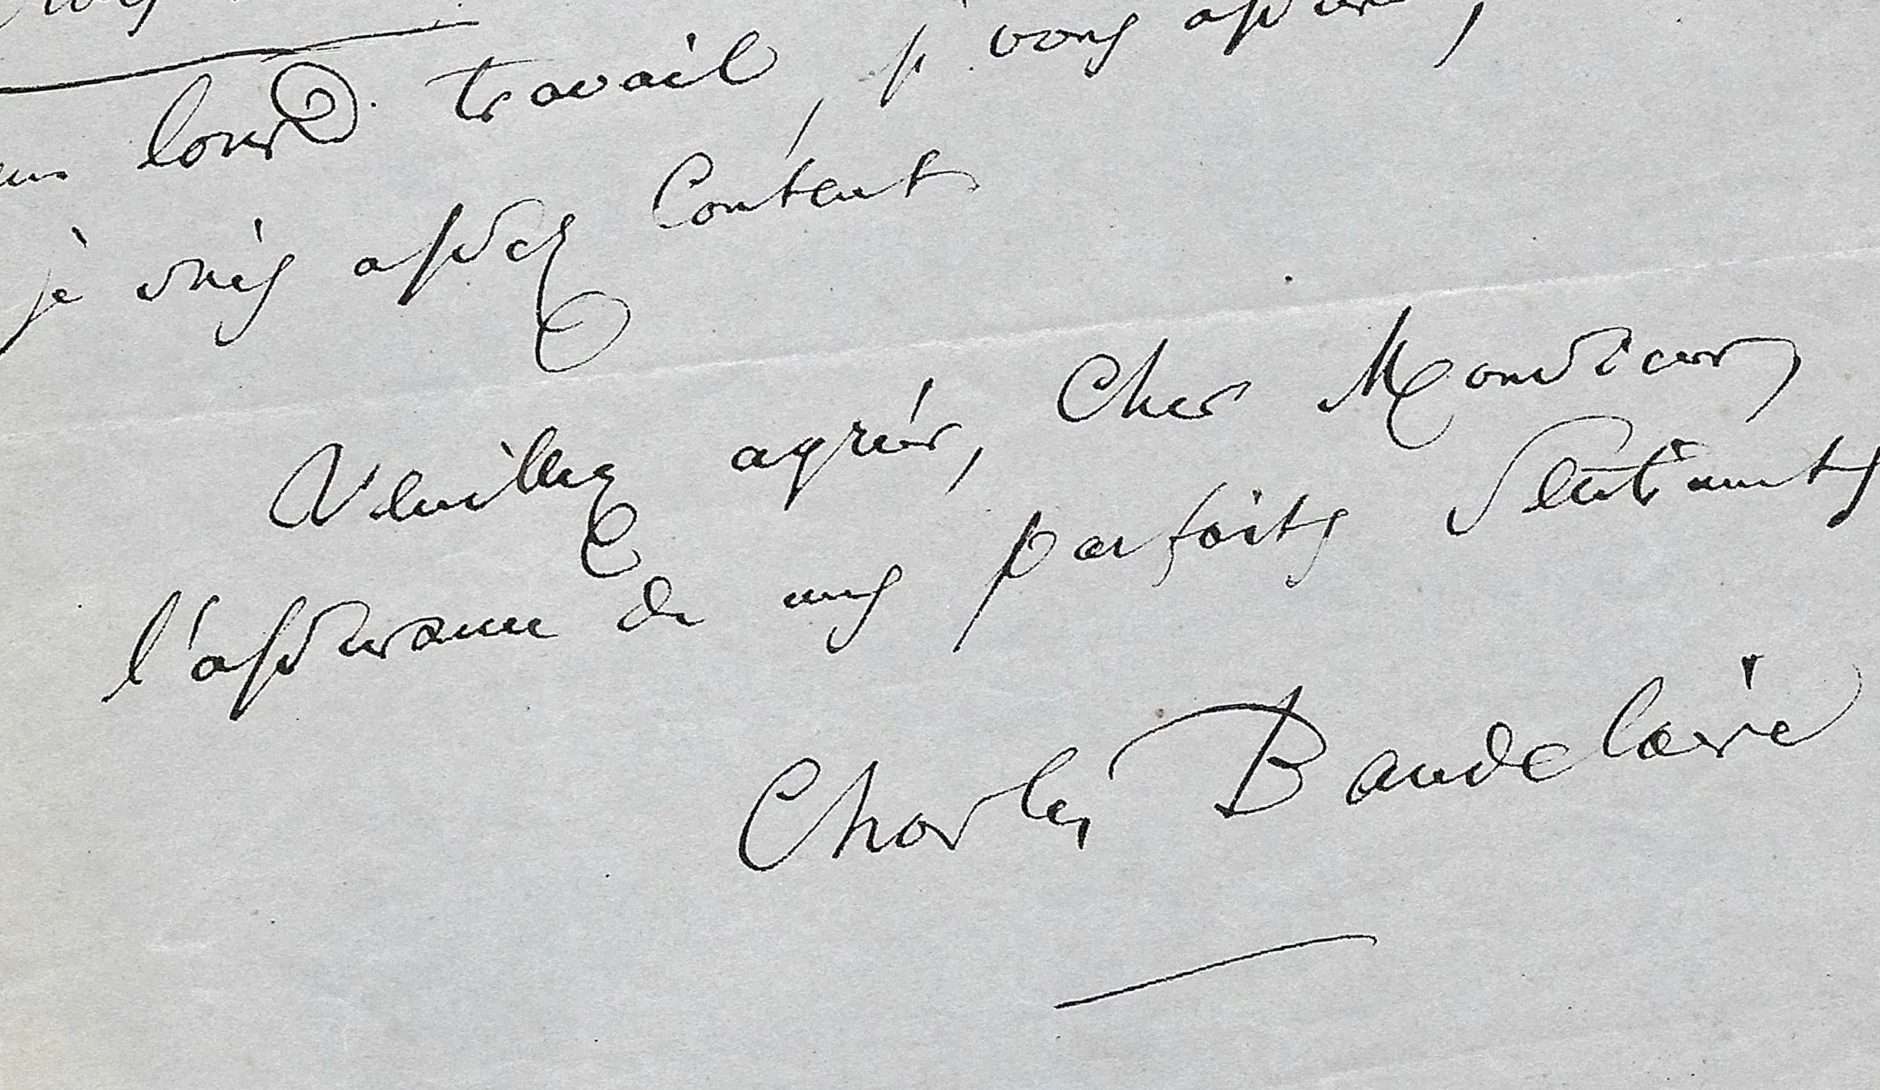 un lourd travail, je vous assure,
je suis assez content
Veuillez agréer, Cher Monsieur,
l'assurance de mes parfaits sentiments
Charles Baudelaire